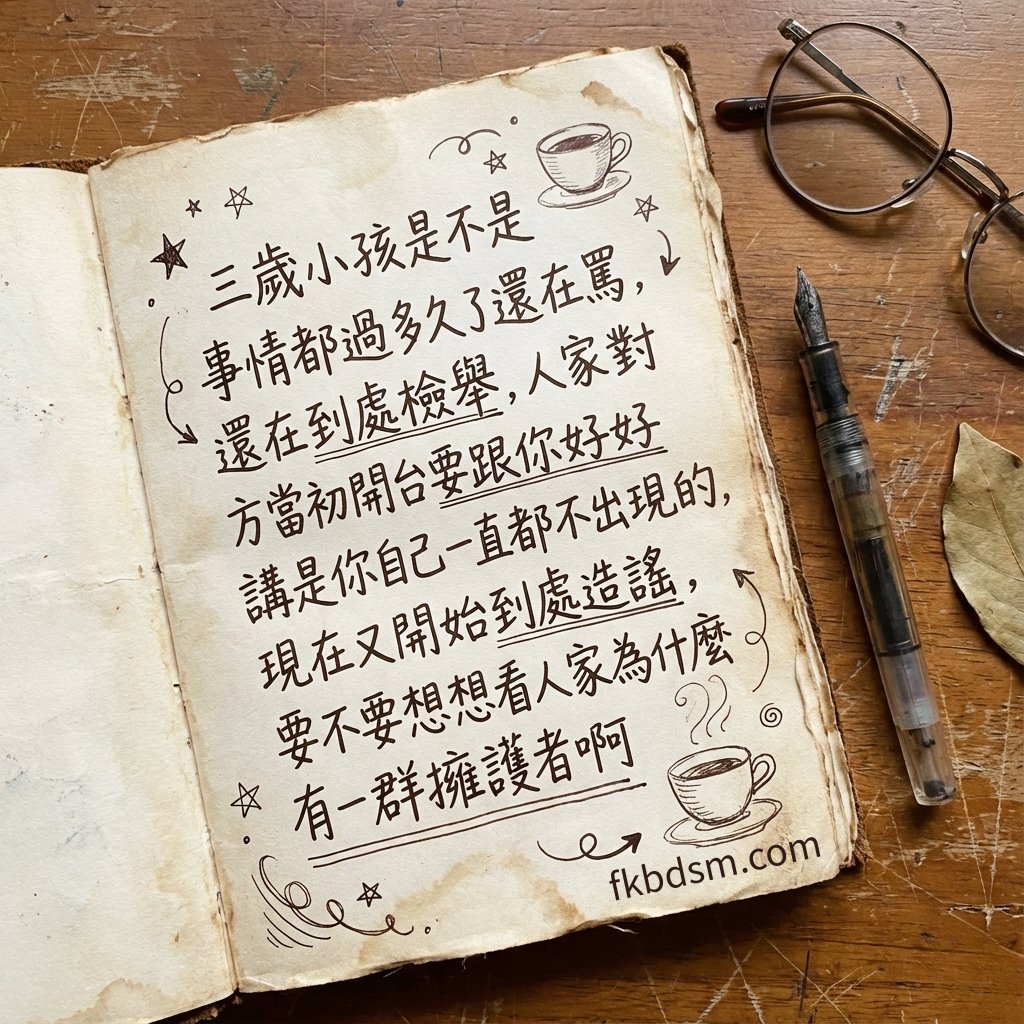 三歲小孩是不是
事情都過多久了還在罵,
還在到處檢舉,人家對
方當初開台要跟你好好
講是你自己一直都不出現的,
現在又開始到處造謠,
要不要想想看人家為什麼
有一群擁護者啊
fkbdsm.com